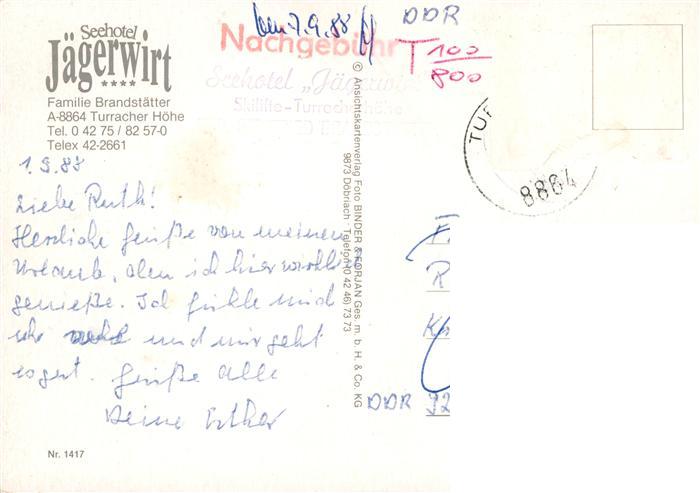 Seehotel
Jägerwirt
****
Familie Brandstätter
A-8864 Turracher Höhe
Tel. 0 42 75 / 82 57-0
Telex 42-2661
7.9.88
DDR
Nachgebühr
T 100
800
Seehotel „Jägerwirt
Skilifte-Turracherhöhe
TUR
8864
1.9.88
Liebe Ruth!
Herzliche Grüße von meinem
Urlaub, den ich hier wirklich
genieße. Ich fühle mich
und mir geht
es gut. Grüße alle
Deine Esther
© Ansichtskartenverlag Foto BINDER & FORJAN Ges. m. b. H. & Co. KG
9873 Döbriach · Telefon (0 42 46) 73 73
R
DDR 92
Nr. 1417